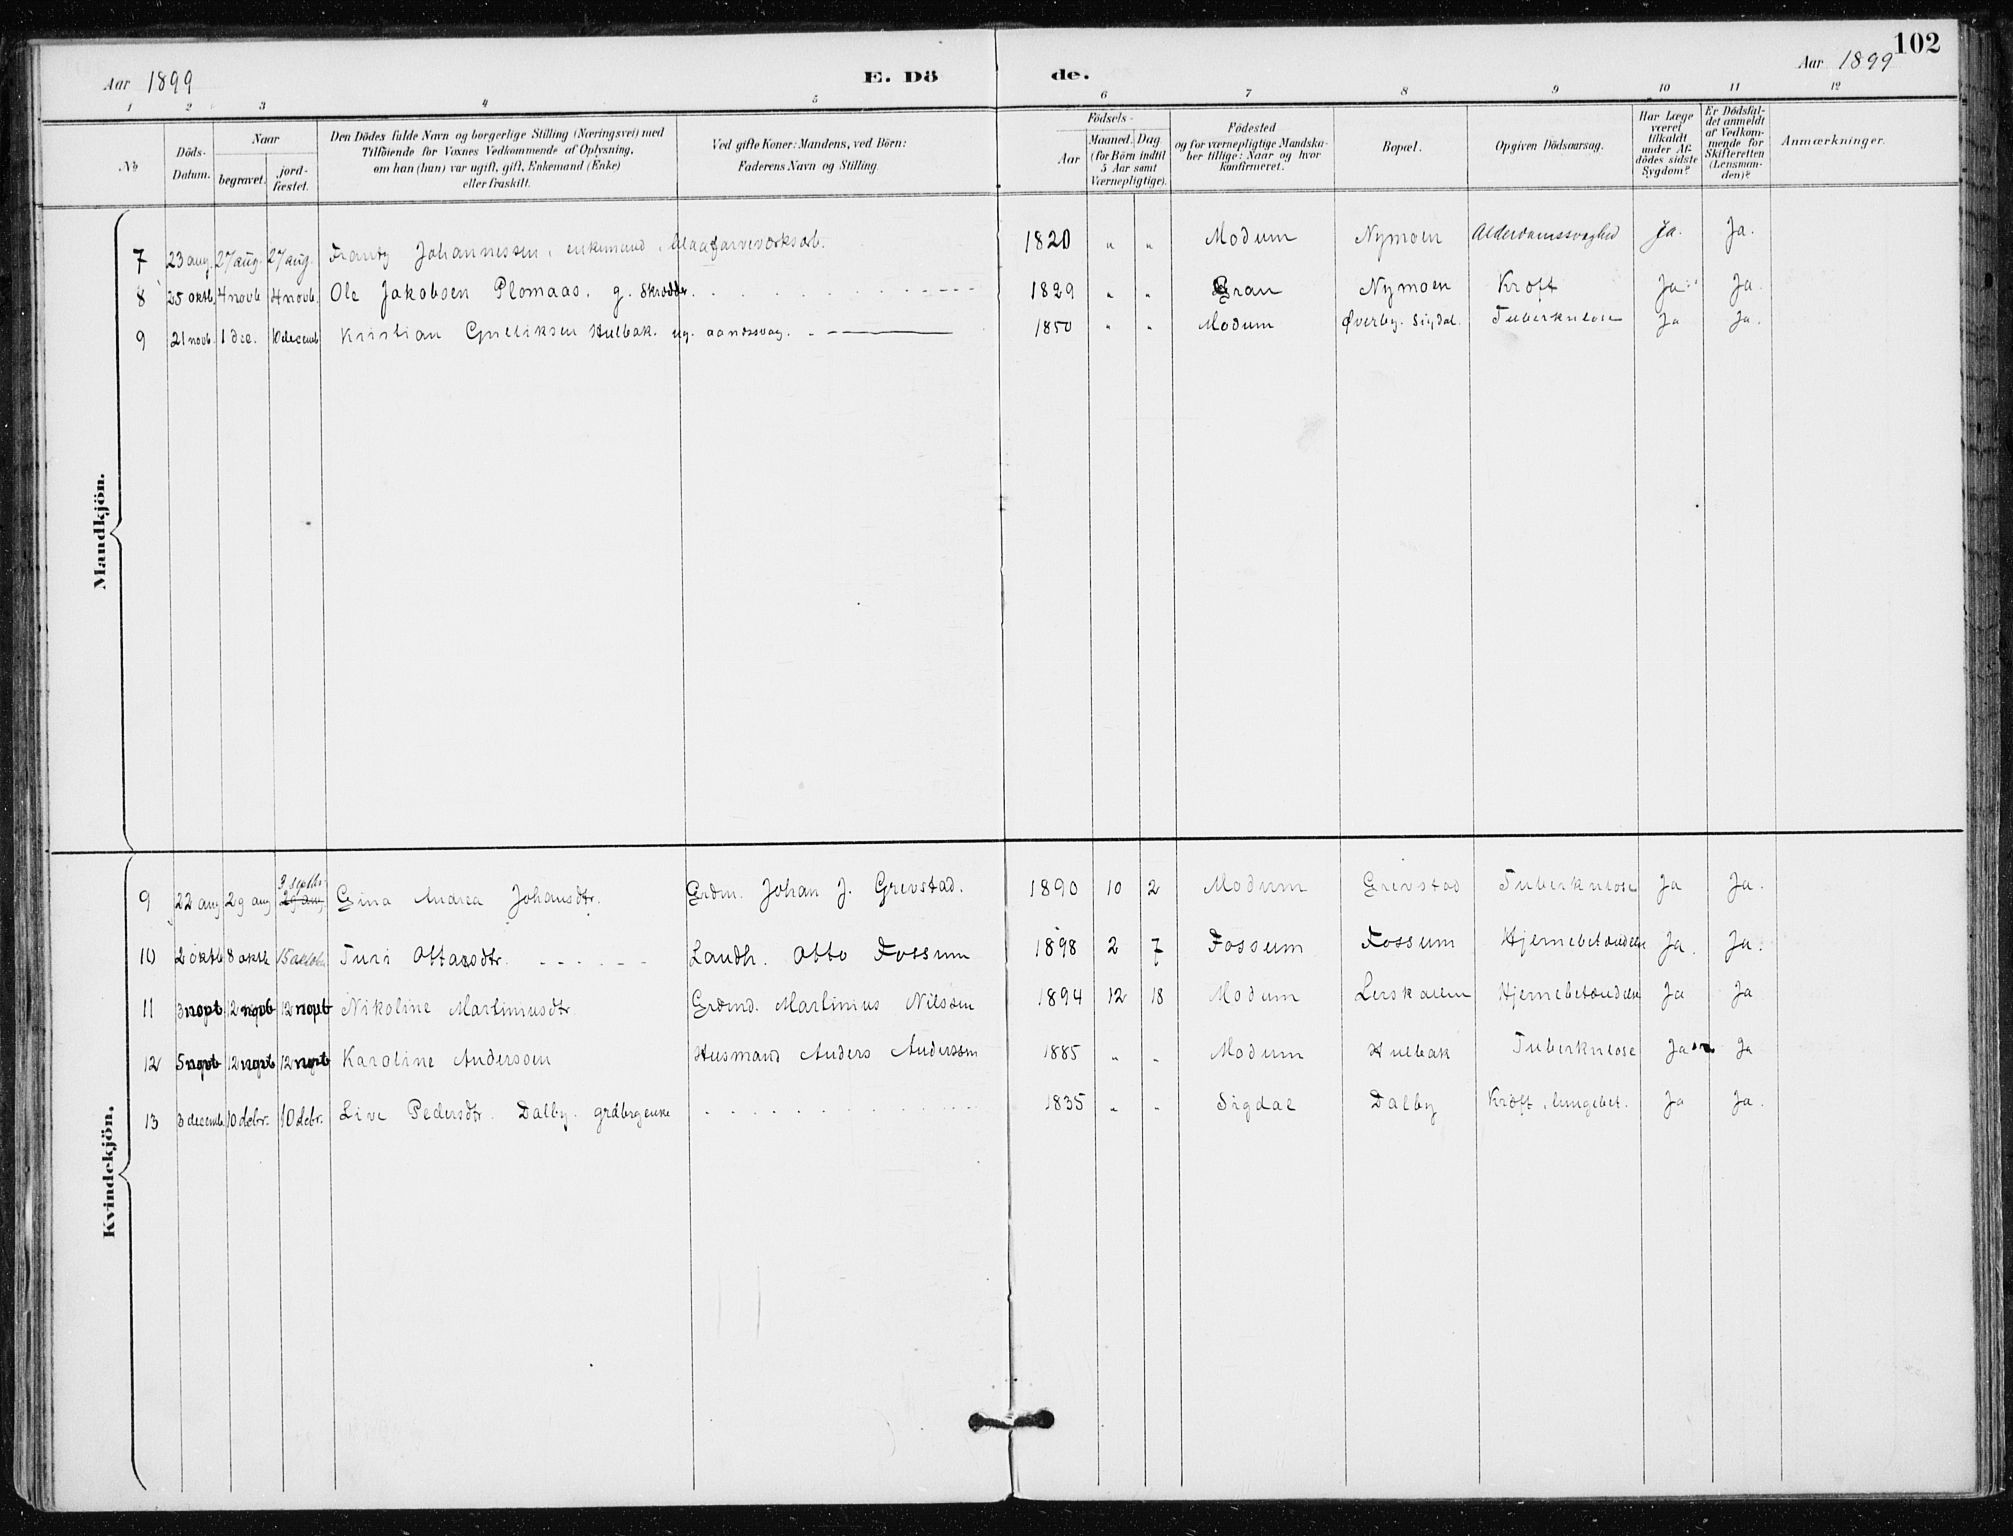 102
Aar 1899 E. Dö de. Aar 1899
1 2 3 4 5 6 7 8 9 10 11 12
No
Döds-Datum.
Naar
begravet.
jord-fæstet.
Den Dödes fulde Navn og borgerlige Stilling (Næringsvei) med
Tilföiende for Voxnes Vedkommende af Oplysning,
om han (hun) var ugift, gift, Enkemand (Enke)
eller fraskilt.
Ved gifte Koner: Mandens, ved Börn:
Faderens Navn og Stilling.
Födsels-
Aar
Maaned. Dag
(for Börn indtil
5 Aar samt
Værnepligtige).
Födested
og for værnepligtige Mandska-
ber tillige: Naar og hvor
konfirmeret.
Bopæl.
Opgiven Dödsaarsag.
Har Læge
været
tilkaldt
under Af-
dödes sidste
Sygdom?
Er Dödsfal-
det anmeldt
af Vedkom-
mende for
Skifteretten
(Lensman-
den)?
Anmærkninger.
Mandkjön.
7 23 aug. 27 aug. 27 aug. Frantz Johannessen, enkemand, blaafarveværksarb. 1820 " " Modum Nymoen Alderdomssvaghed Ja. Ja.
8 25 oktb. 4 novb. 4 novb. Ole Jakobsen Plomaas. g. Skrædder. 1829 " " Gran Nymoen Kræft Ja. Ja.
9 21 novb. 1 dec. 10 decemb Kristian Gulliksen Hulbak. ug. aandssvag. 1850 " " Modum Øverby. Sigdal. Tuberkulose Ja Ja.
Kvindekjön.
3 septb.
9 22 aug 29 aug 29 aug Gina Andrea Johansdtr. Grdm. Johan J. Grevstad. 1890 10 2 Modum Grevstad Tuberkulose Ja Ja.
10 2 oktb 8 oktb 15 oktobr Turi Ottarsdtr. Landh. Otto Fossum 1898 2 7 Fossum Fossum Hjernebetændelse Ja. Ja.
11 3 novb 12 novb 12 novb Nikoline Martiniusdtr Grdmd. Martinius Nilssen 1894 12 18 Modum Lerskallen Hjernebetændelse Ja Ja
12 5 novb 12 novb 12 novb Karoline Anderssen Husmand Anders Anderssen 1885 " " Modum Hulbak Tuberkulose Ja Ja
13 3 decemb 10 debr. 10 debr. Live Pedersdtr. Dalby. grdbrgenke 1835 " " Sigdal Dalby Kræft, lungebet. Ja Ja.